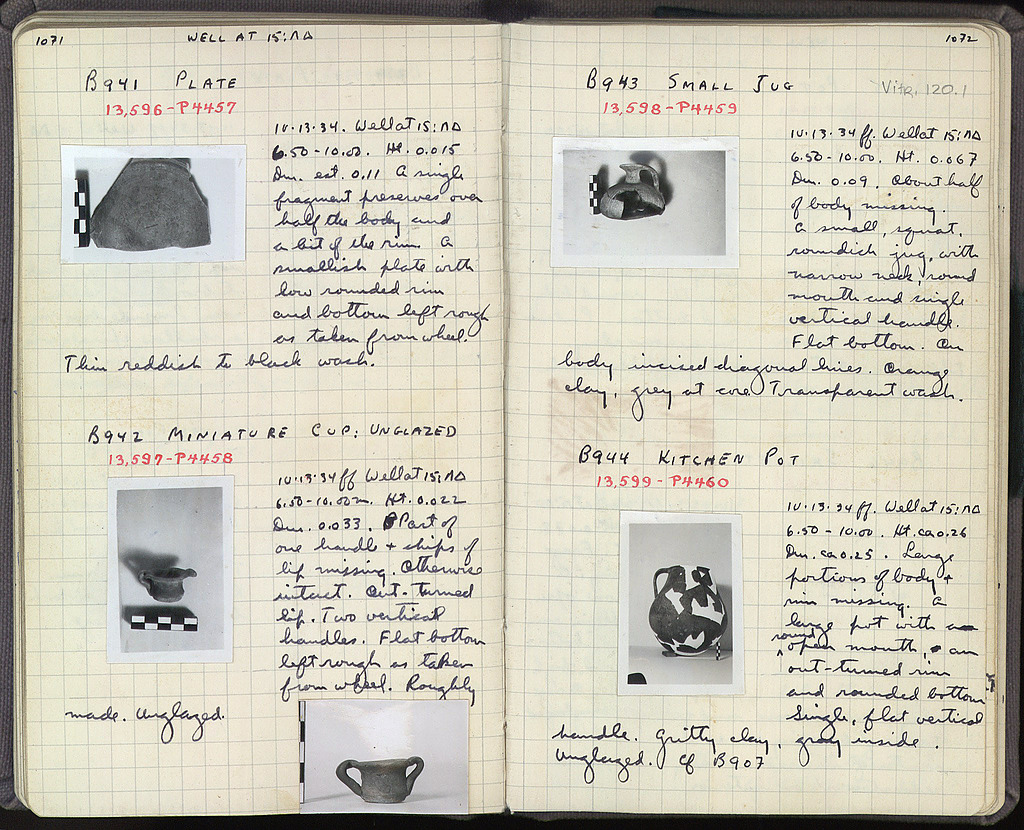 1071
WELL AT 15:ΛΔ
B941 PLATE
13,596-P4457
IV.13.34. Well at 15:ΛΔ
6.50-10.00. Ht. 0.015
Dm. est. 0.11 A single
fragment preserves over
half the body and
a bit of the rim. A
smallish plate with
low rounded rim
and bottom left rough
as taken from wheel.
Thin reddish to black wash.
B942 MINIATURE CUP: UNGLAZED
13,597-P4458
IV.13.34 ff Well at 15:ΛΔ
6.50-10.00 m. Ht. 0.022
Dm. 0.033. Part of
one handle + chips of
lip missing. Otherwise
intact. Out-turned
lip. Two vertical
handles. Flat bottom
left rough as taken
from wheel. Roughly
made. Unglazed.
1072
B943 SMALL JUG
Vitr. 120.1
13,598-P4459
IV.13.34 ff. Well at 15:ΛΔ
6.50-10.00. Ht. 0.067
Dm. 0.09. About half
of body missing.
A small, squat,
roundish jug, with
narrow neck, round
mouth and single
vertical handle.
Flat bottom. On
body incised diagonal lines. Orange
clay, grey at core. Transparent wash.
B944 KITCHEN POT
13,599-P4460
IV.13.34 ff. Well at 15:ΛΔ
6.50-10.00. Ht. ca 0.26
Dm. ca 0.25. Large
portions of body +
rim missing. A
large pot with
round open mouth, an
out-turned rim
and rounded bottom
Single, flat vertical
handle. Gritty clay, gray inside.
Unglazed. Cf B907